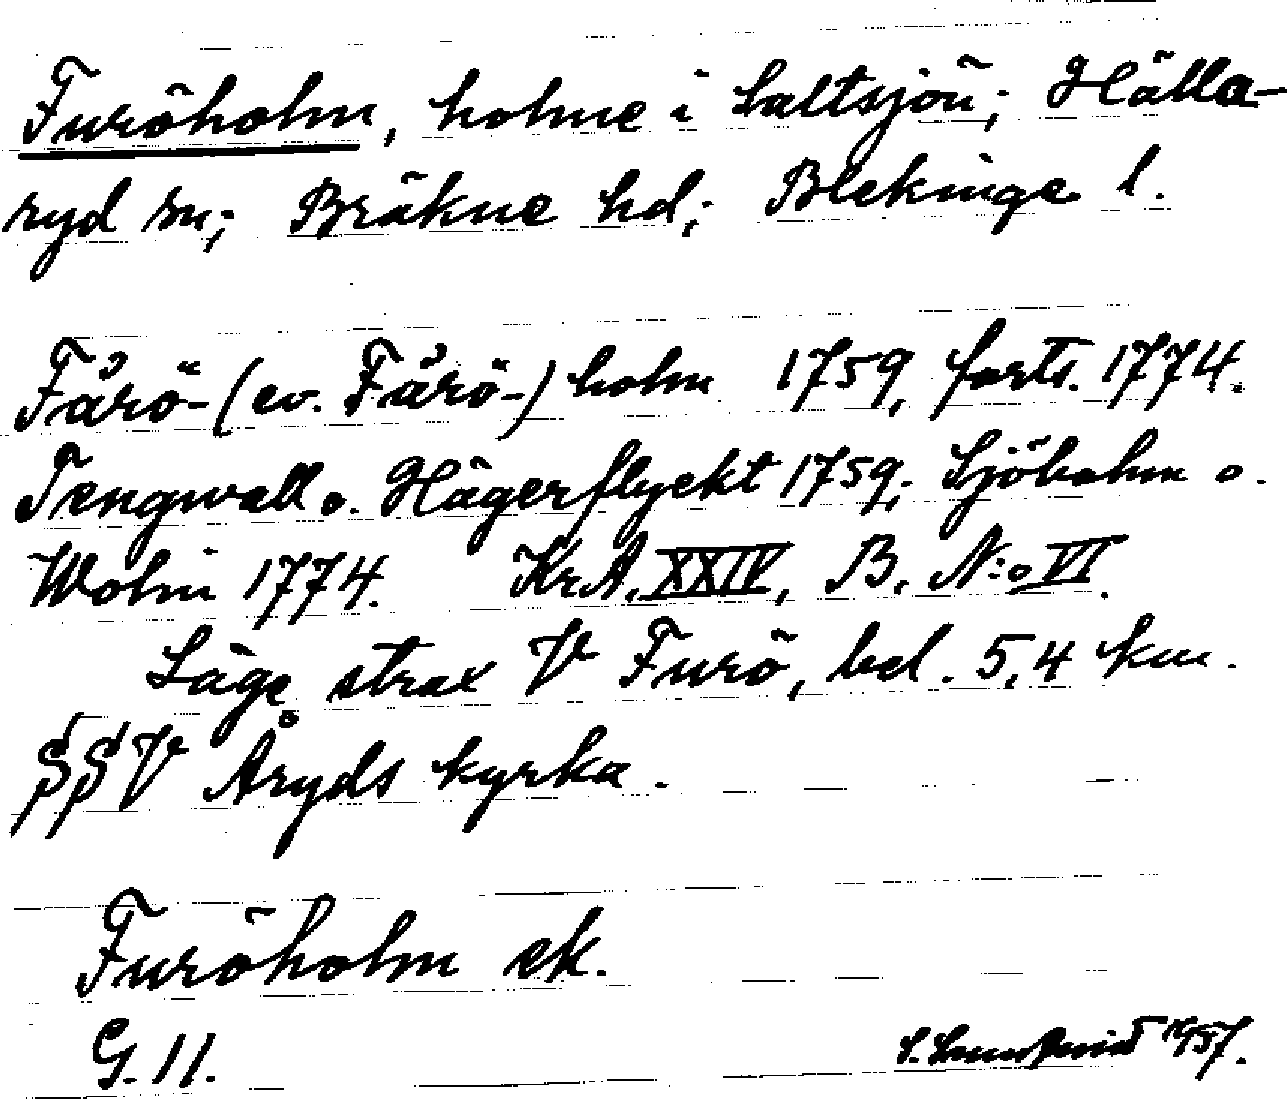 Furöholm, holme i Saltsjön; Hälla-
ryd sn; Bräkne hd; Blekinge l.
Fårö- (ev. Färö-) holm 1759, forts. 1774.
Tengwall o. Hägerflyckt 1759; Sjöbohm o.
Wolin 1774. KrA. XXIV, B. N:o VI.
Läge strax V Furö, bel. 5,4 km.
SSV Åryds kyrka.
Furöholm ek.
G. 11. 1957.